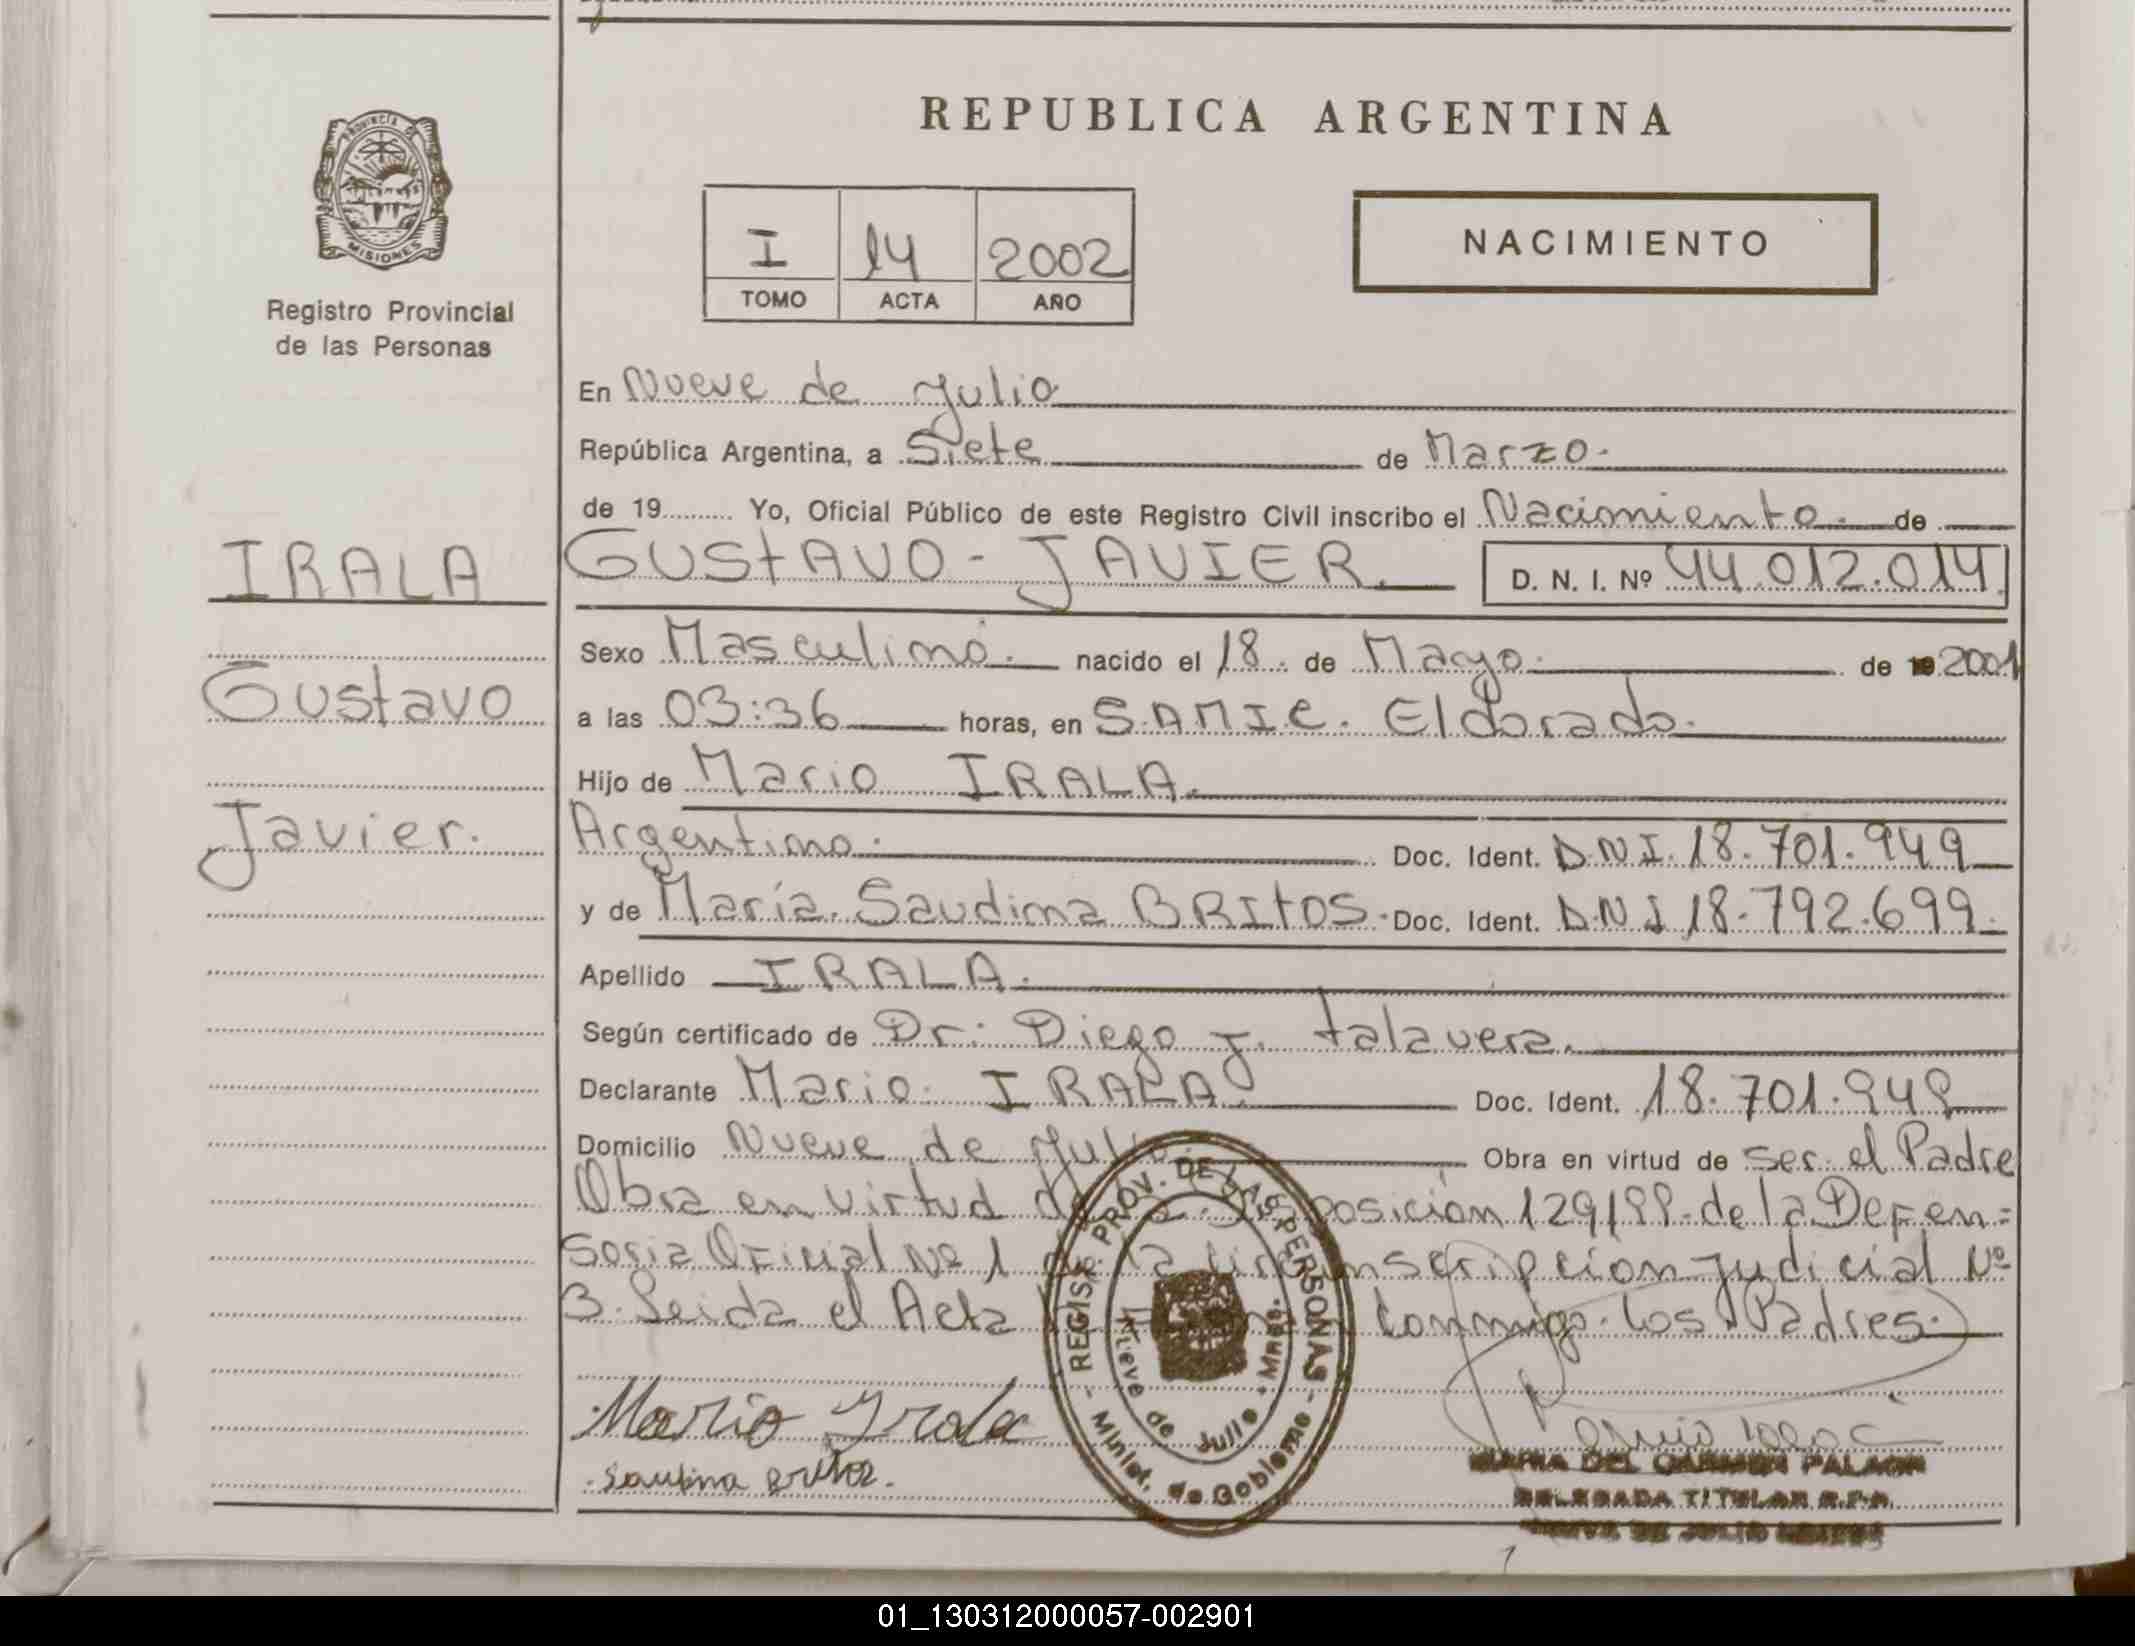 REPUBLICA ARGENTINA
PROVINCIA DE
MISIONES
Registro Provincial
de las Personas
I 14 2002
TOMO ACTA AÑO
NACIMIENTO
En Nueve de Julio
República Argentina, a Siete de Marzo.
de 19 Yo, Oficial Público de este Registro Civil inscribo el Nacimiento. de
IRALA
Gustavo
Javier.
GUStAVO - JAVIER. D. N. I. Nº 44.012.014
Sexo Masculino. nacido el 18. de Mayo. de 19 2001
a las 03:36 horas, en S.AMIC. Eldorado.
Hijo de Mario IRALA.
Argentino. Doc. Ident. D.N.I. 18.701.949
y de María. Saudina BRItOS. Doc. Ident. D.N.I 18.792.699.
Apellido IRALA.
Según certificado de Dr: Diego J. talavera.
Declarante Mario. IRALA. Doc. Ident. 18.701.949
Domicilio Nueve de Julio. Obra en virtud de ser el Padre
Obra en virtud de la Disposición 129/99. de la Defen=
soria Oficial Nº 1 de la circunscripcion Judicial Nº
3. Leida el Acta conmigo. los Padres.
Mario Irala
Saudina Britos.
REGIST. PROV. DE LAS PERSONAS
Minist. de Gobierno
Nueve de Julio - Mnes.
MARIA DEL CARMEN PALACIN
DELEGADA TITULAR R.P.P.
NUEVE DE JULIO
01_130312000057-002901